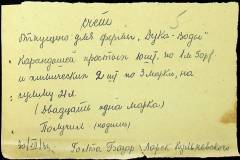 счет 5
Отпущено для фирмы „Дука-Води"
Карандашей простых 10шт. по 1м 50рф
и химических 2 шт по 3 марки, на
сумму 21м.
(двадцать одна марка)
Получил (подпись)
30/